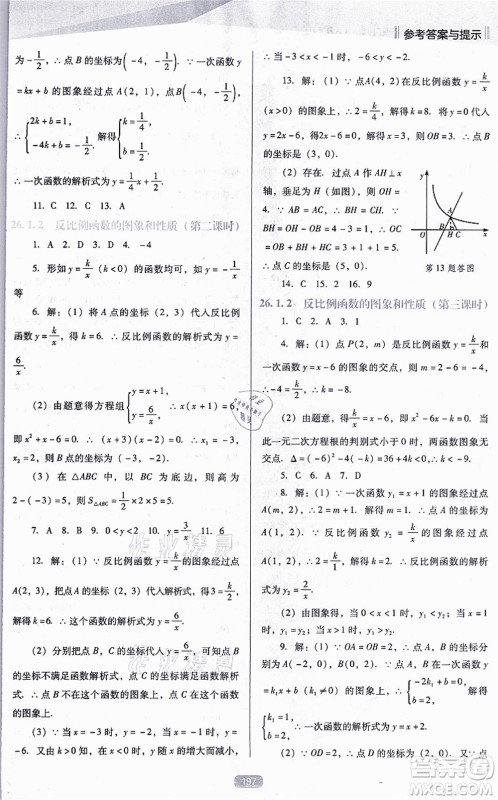 参考答案与提示
为-1/2, ∴点B的坐标为(-4, -1/2). ∵一次函数y
=kx+b的图象经过点A(2, 1), 点B(-4, -1/2),
∴{2k+b=1, -4k+b=-1/2, 解得{k=1/4, b=1/2.
∴一次函数的解析式为y=1/4x+1/2.
11. C 12. C 13. A
26.1.2 反比例函数的图象和性质(第二课时)
1. A 2. D 3. D 4. -3
5. 形如y=k/x(k<0)的函数均可, 如y=-1/x
等
6. 解:(1)将A点的坐标(2, 3)代入反比例函
数y=k/x, 得k=6. ∴反比例函数的解析式为y=
6/x.
(2)由题意得方程组{y=x+1, y=6/x, ∴x(x+1)=6,
即x²+x-6=0. ∴(x+3)(x-2)=0. ∴x₁=-3,
x₂=2, 则B点的坐标为(-3, -2).
(3)在△ABC中, 以BC为底边, 则高为
2-(-3)=5, 则S△ABC=1/2×2×5=5.
7. A 8. B 9. 0<y<2 10. y=3/x 11. 6
12. 解:(1)∵反比例函数y=k/x的图象经过点
A(2, 3), 把点A的坐标(2, 3)代入解析式, 得3=k/2,
解得k=6. ∴这个函数的解析式为y=6/x.
(2)分别把点B, C的坐标代入y=6/x, 可知点B
的坐标不满足函数解析式, 点C的坐标满足函数解
析式. ∴点B不在这个函数的图象上, 点C在这个
函数的图象上.
(3)∵当x=-3时, y=-2; 当x=-1时, y=
-6. 又由k>0知, 在x<0时, y随x的增大而减小,
∴当-3<x<-1时, -6<y<-2.
13. 解:(1)∵点A(4, 2)在反比例函数y=k/x
(x>0)的图象上, ∴解得k=8. 将y=0代入
y=2x-6, 得2x-6=0, 解得x=3, 则OB=3. ∴点B
的坐标是(3, 0).
(2)存在. 过点A作AH⊥x
轴, 垂足为H(如图), 则OH=4.
∵AB=AC, ∴BH=CH. ∵
BH=OH-OB=4-3=1, ∴OC
=OB+BH+HC=3+1+1=5, ∴
点C的坐标是(5, 0).
第13题答图
14. C 15. 2 16. 9
26.1.2 反比例函数的图象和性质(第三课时)
1. C 2. A 3. 1
4. 解:(1)点P(2, m)是反比例函数y=k/x和
一次函数y=x-6的图象的交点, 则m=2-6=-4.
∴-4=k/2. ∴k=-8.
(2)由题意, 得k/x=x-6, 即x²-6x-k=0. 当
此一元二次方程根的判别式小于0时, 两函数图象
无交点. ∵Δ=(-6)²-4×(-k)=36+4k<0, ∴k<-9.
5. C 6. A 7. D
8. 解:(1)∵一次函数y₁=x+1的图象经过点
A(m, 2), ∴2=m+1. 解得m=1. ∴点A的坐标为
A(1, 2). ∵反比例函数y₂=k/x的图象经过点
A(1, 2), ∴2=k/1. 解得k=2. ∴反比例函数的解析
式为y₂=2/x.
(2)由图象, 得当0<x<1时, y₁<y₂; 当x=1
时, y₁=y₂; 当x>1时, y₁>y₂.
9. 解:(1)∵OA=OB=2, ∴点A, B的坐标分
别为A(-2, 0), B(0, 2). ∵一次函数y₁=k₁x+b
(k₁≠0)的图象经过点A, B, ∴{-2k₁+b=0, b=2. 解得
{k₁=1, b=2.
(2)∵OD=2, ∴点D的坐标为(2, 0). 又∵点
197